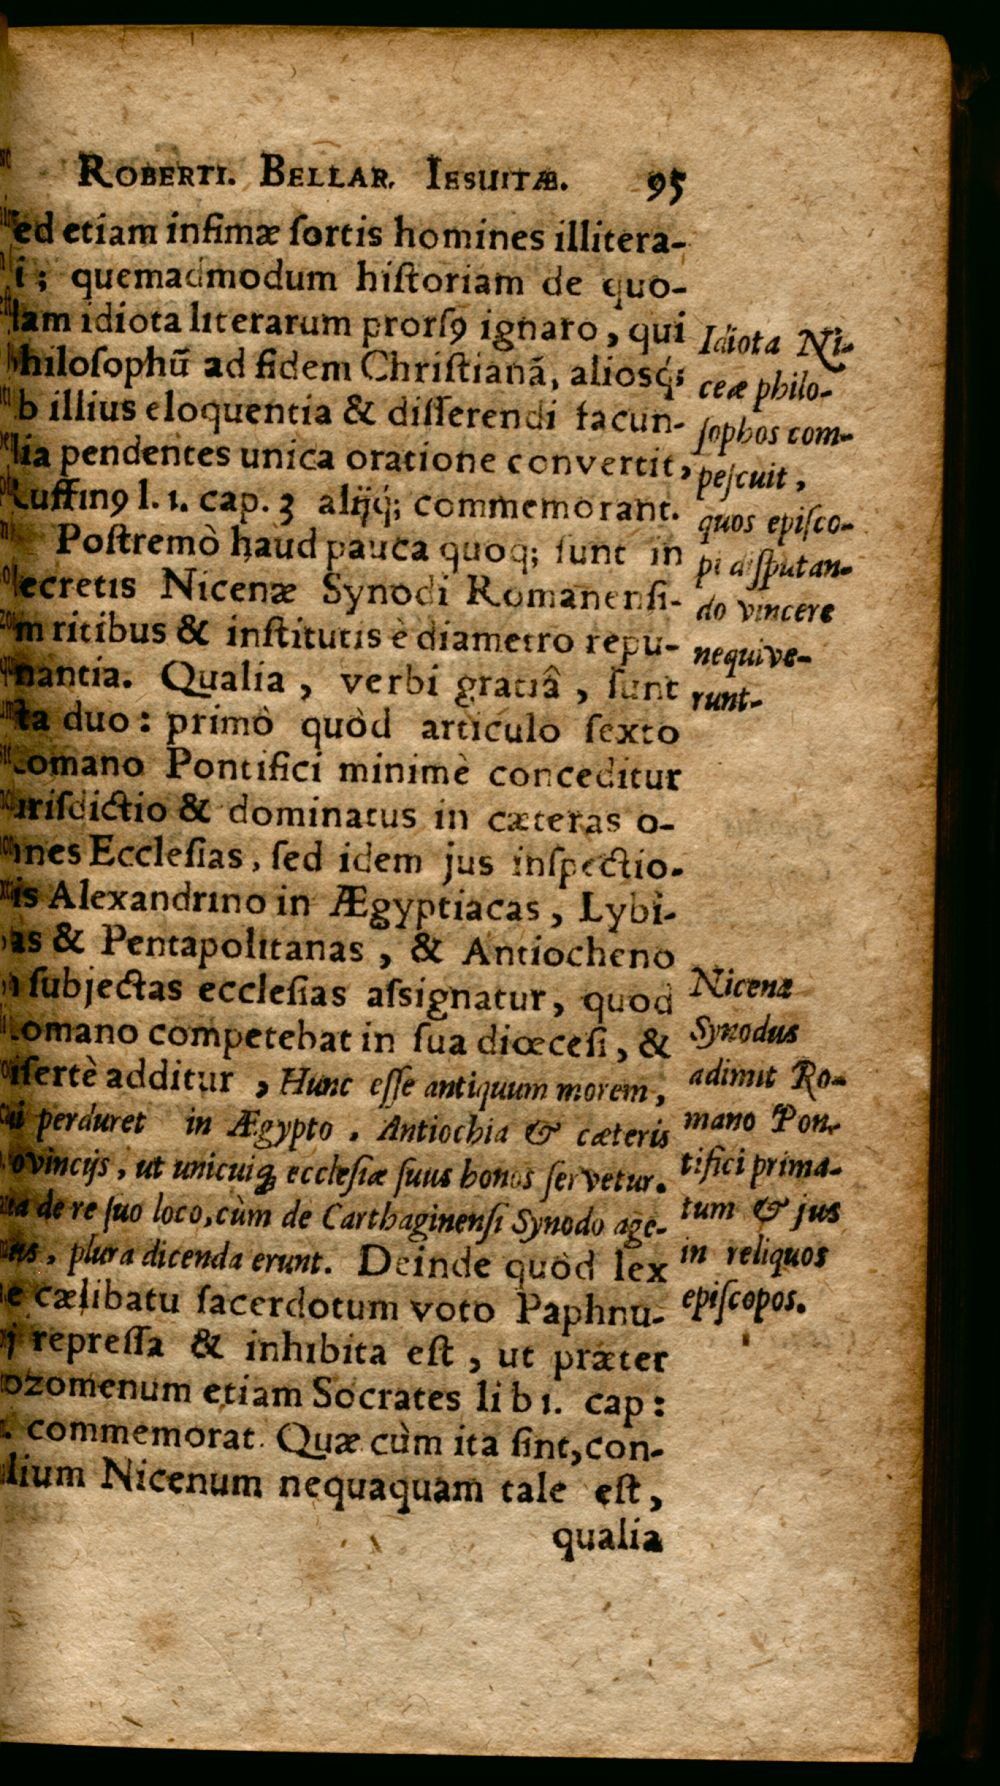 ROBERTI. BELLAR. IESUITÆ. 95
ed etiam infimæ ſortis homines illitera-
i; quemadmodum hiſtoriam de quo-
lam idiota literarum prorſꝰ ignaro, qui
hiloſophū ad fidem Chriſtianā, aliosq́;
b illius eloquentia & diſſerendi facun-
lia pendentes unica oratione convertit,
Ruffinꝰ l. 1. cap. 3 alijq́; commemorant.
Poſtremò haud pauca quoq; ſunt in
lecretis Nicenæ Synodi Romanenſi-
m ritibus & inſtitutis è diametro repu-
nantia. Qualia, verbi gratiâ, ſunt
ſta duo: primò quòd articulo ſexto
omano Pontifici minimè conceditur
uriſdictio & dominatus in cæteras o-
mnes Eccleſias, ſed idem jus inſpectio-
is Alexandrino in Ægyptiacas, Lybi-
as & Pentapolitanas, & Antiocheno
n ſubjectas eccleſias aſsignatur, quod
omano competebat in ſua diœceſi, &
iſertè additur, Hunc eſſe antiquum morem,
ui perduret in Ægypto, Antiochia & cæteris
ovincijs, ut unicuiq; eccleſiæ ſuus honos ſervetur.
ea de re ſuo loco, cùm de Carthaginenſi Synodo age-
us, plura dicenda erunt. Deinde quòd lex
e cælibatu ſacerdotum voto Paphnu-
ij repreſſa & inhibita eſt, ut præter
ozomenum etiam Socrates lib 1. cap:
. commemorat. Quæ cùm ita ſint, con-
lium Nicenum nequaquam tale eſt,
qualia
Idiota Ni-
ceæ philo-
ſophos com-
peſcuit,
quos epiſco-
pi diſputan-
do vincere
nequive-
runt-
Nicena
Synodus
adimit Ro-
mano Pon-
tifici prima-
tum & jus
in reliquos
epiſcopos.